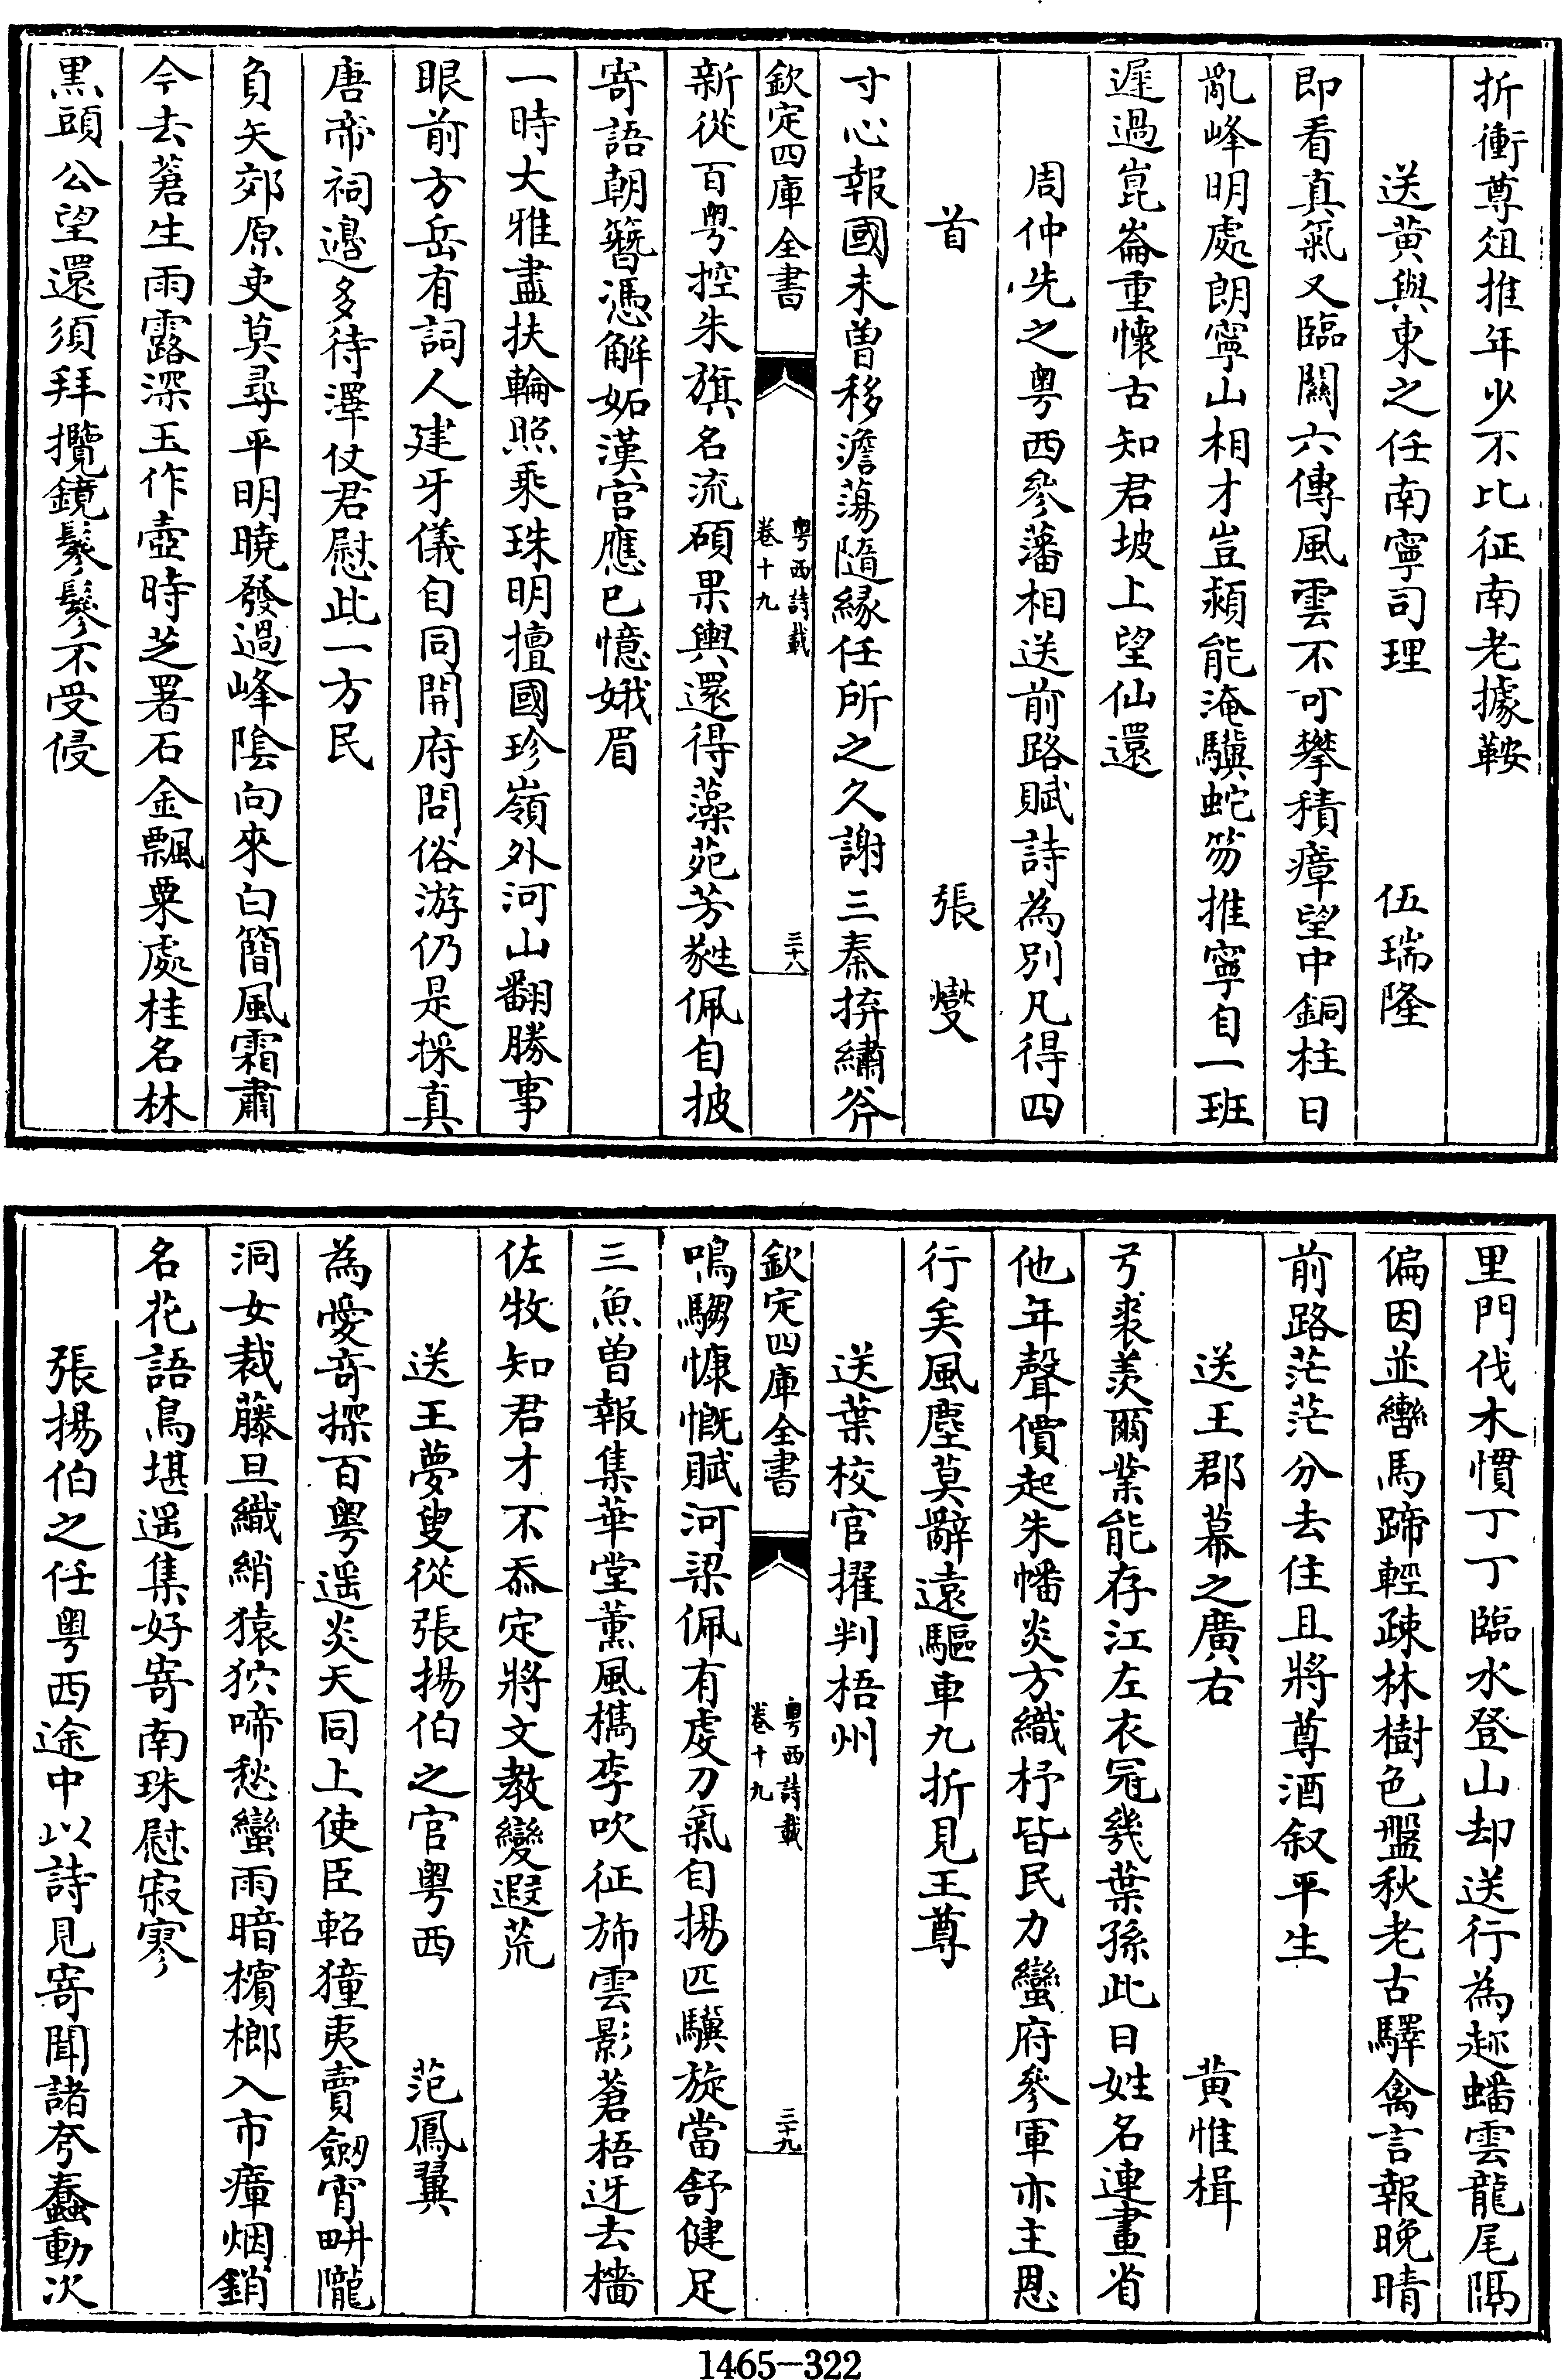 折衝尊俎推年少不比征南老據鞍
送黄與東之任南寧司理 伍瑞隆
即看真氣又臨關六傳風雲不可攀積瘴望中銅柱日
亂峰明處朗寧山相才豈頻能淹驥蛇笏推寧自一班
遲過崑崙重懷古知君坡上望仙還
周仲先之粤西參藩相送前路賦詩為别凡得四
首 張燮
寸心報國未曽移澹蕩隨緣任所之久謝三秦捹繡斧
欽定四庫全書
粤西詩載
卷十九
三十八
新從百粤控朱旗名流碩果輿還得藻苑芳蕤佩自披
寄語朝簪憑解妬漢宫應已憶娥眉
一時大雅盡扶輪照乘珠明擅國珍嶺外河山翻勝事
眼前方岳有詞人建牙儀自同開府問俗游仍是採真
唐帝祠邉多待澤仗君慰此一方民
負矢郊原吏莫尋平明曉發過峰隂向來白簡風霜肅
今去蒼生雨露深玉作壺時芝署石金飄粟處桂名林
黒頭公望還須拜攬鏡鬖鬖不受侵
里門伐木慣丁丁臨水登山却送行為趂蟠雲龍尾隔
偏因並轡馬蹄輕疎林樹色盤秋老古驛禽言報晚晴
前路茫茫分去住且將尊酒叙平生
送王郡幕之廣右 黄惟楫
弓裘羨爾業能存江左衣冠幾葉孫此日姓名連畫省
他年聲價起朱幡炎方織杼皆民力蠻府參軍亦主恩
行矣風塵莫辭逺驅車九折見王尊
送葉校官擢判梧州
欽定四庫全書
粤西詩載
卷十九
三十九
鳴騶慷慨賦河梁佩有䖍刀氣自揚匹驥旋當舒健足
三魚曽報集華堂薰風檇李吹征斾雲影蒼梧迓去檣
佐牧知君才不忝定將文教變遐荒
送王夢叟從張揚伯之官粤西 范鳳翼
為愛竒探百粤遥炎天同上使臣軺獞夷賣劒宵畊隴
洞女裁藤旦織綃猿狖啼愁蠻雨暗檳榔入市瘴烟銷
名花語鳥堪遥集好寄南珠慰寂寥
張揚伯之任粤西途中以詩見寄聞諸夸蠢動次
1465-322